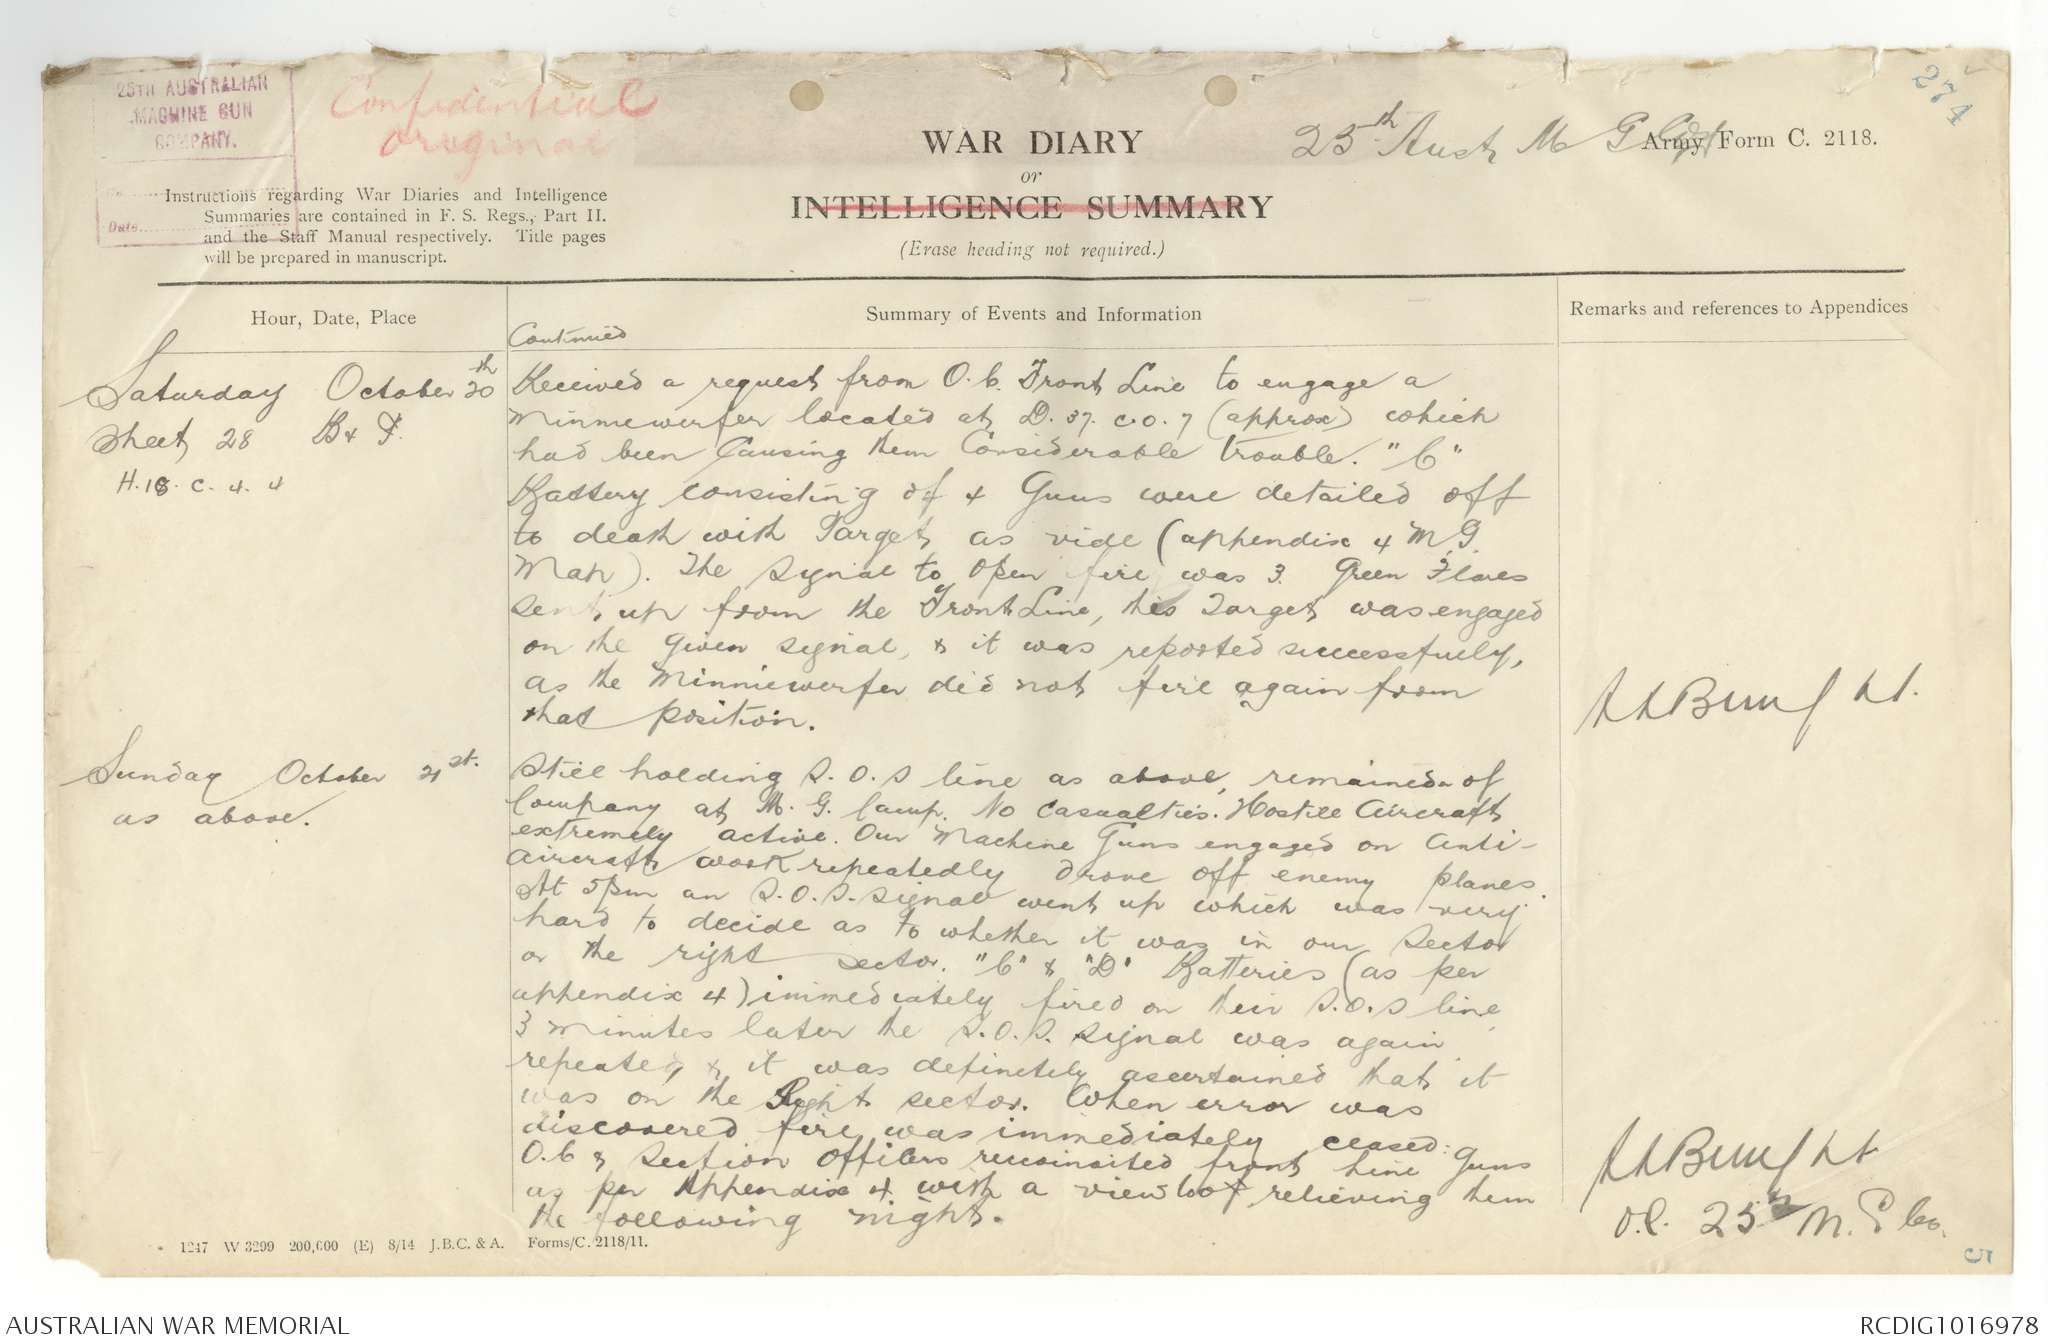 25TH AUSTRALIAN
MACHINE GUN
COMPANY.
Date
Confidential
Original
274
WAR DIARY
or
INTELLIGENCE SUMMARY
(Erase heading not required.)
25th Aust M G Coy
Army Form C. 2118.
Instructions regarding War Diaries and Intelligence
Summaries are contained in F. S. Regs., Part II.
and the Staff Manual respectively. Title pages
will be prepared in manuscript.
Hour, Date, Place
Summary of Events and Information
Remarks and references to Appendices
Continued
Saturday October 20th
Sheet 28 B & F.
H.18.C.4.4
Received a request from O.C. Front Line to engage a
Minniewerfer located at D. 37. c.0.7 (approx) which
had been Causing them Considerable trouble. "C"
Battery consisting of 4 Guns were detailed off
to death with Target as vide (appendix 4 M.G.
Map). The Signal to open fire was 3 Green Flares
sent up from the Front Line, this Target was engaged
on the given signal, & it was reported successfully,
as the Minniewerfer did not fire again from
that position.
Sunday October 21st.
as above.
Still holding S.O.S line as above, remainder of
Company at M.G. Camp. No casualties. Hostile Aircraft
extremely active. Our Machine Guns engaged on Anti-
Aircraft work repeatedly drove off enemy planes.
At 5pm an S.O.S. signal went up which was very
hard to decide as to whether it was in our Sector
or the right sector. "C" & "D" Batteries (as per
appendix 4) immediately fired on their S.O.S line
3 minutes later the S.O.S. signal was again
repeated & it was definitely ascertained that it
was on the Right sector. When error was
discovered fire was immediately ceased:
O.C & Section Officers reconnoited front line Guns
as per Appendix 4 with a view to relieving them
the following night.
Lt.
Lt
O.C. 25th M.G Co.
5
1247 W 3299 200,000 (E) 8/14 J.B.C. & A. Forms/C. 2118/11.
AUSTRALIAN WAR MEMORIAL
RCDIG1016978